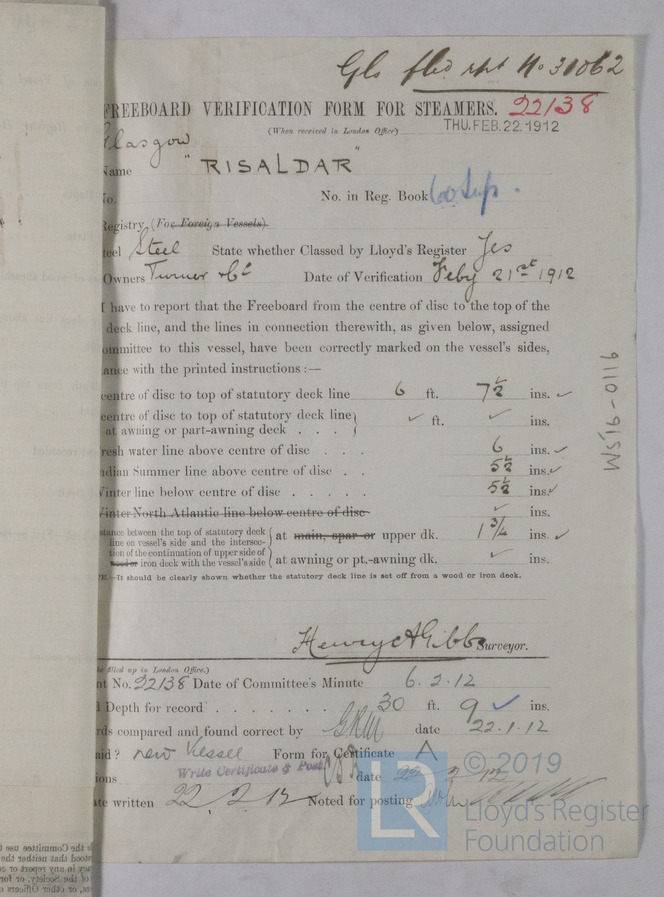 Gls fled rpt No 31062
FREEBOARD VERIFICATION FORM FOR STEAMERS. 22138
(When received in London Office) THU. FEB. 22. 1912
Glasgow
Name "RISALDAR"
No. No. in Reg. Book
Registry (For Foreign Vessels)
teel Steel State whether Classed by Lloyd's Register Yes
Owners Turner & Co Date of Verification Feby 21st 1912
I have to report that the Freeboard from the centre of disc to the top of the
deck line, and the lines in connection therewith, as given below, assigned
ommittee to this vessel, have been correctly marked on the vessel's sides,
ance with the printed instructions :—
centre of disc to top of statutory deck line 6 ft. 7½ ins. ✓
centre of disc to top of statutory deck line
at awning or part-awning deck . . . ✓ ft. ✓ ins.
resh water line above centre of disc . . . 6 ins. ✓
ndian Summer line above centre of disc . . 5½ ins. ✓
Winter line below centre of disc . . . . . 5½ ins. ✓
Winter North Atlantic line below centre of disc ✓ ins.
stance between the top of statutory deck
line on vessel's side and the intersec- at main, spar or upper dk. 1¾ ins. ✓
tion of the continuation of upper side of
wood or iron deck with the vessel's side at awning or pt.-awning dk. ✓ ins.
TE.—It should be clearly shown whether the statutory deck line is set off from a wood or iron deck.
Henry A Gibb Surveyor.
be filled up in London Office.)
nt No. 22138 Date of Committee's Minute 6.2.12
d Depth for record . . . . . . . 30 ft. 9 ✓ ins.
rds compared and found correct by date 22.1.12
aid? new Vessel Form for Certificate A
Write Certificate & Post
ions date 22 2 12
te written 22.2.12 Noted for posting
9110-91SM
LR © 2019
Lloyd's Register
Foundation